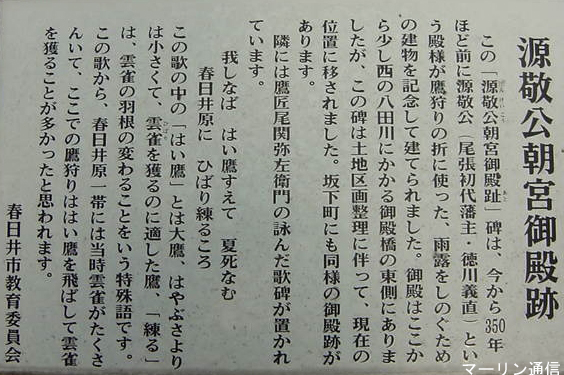 源敬公朝宮御殿跡
この「源敬公朝宮御殿趾」碑は、今から350年
ほど前に源敬公(尾張初代藩主・徳川義直)とい
う殿様が鷹狩りの折に使った、雨露をしのぐため
の建物を記念して建てられました。御殿はここか
ら少し西の八田川にかかる御殿橋の東側にありま
したが、この碑は土地区画整理に伴って、現在の
位置に移されました。坂下町にも同様の御殿跡が
あります。
隣には鷹匠尾関弥左衛門の詠んだ歌碑が置かれ
ています。
我しなば はい鷹すえて 夏死なむ
春日井原に ひばり練るころ
この歌の中の「はい鷹」とは大鷹、はやぶさより
は小さくて、雲雀を獲るのに適した鷹、「練る」
は、雲雀の羽根の変わることをいう特殊語です。
この歌から、春日井原一帯には当時雲雀がたくさ
んいて、ここでの鷹狩りははい鷹を飛ばして雲雀
を獲ることが多かったと思われます。
春日井市教育委員会
マーリン通信